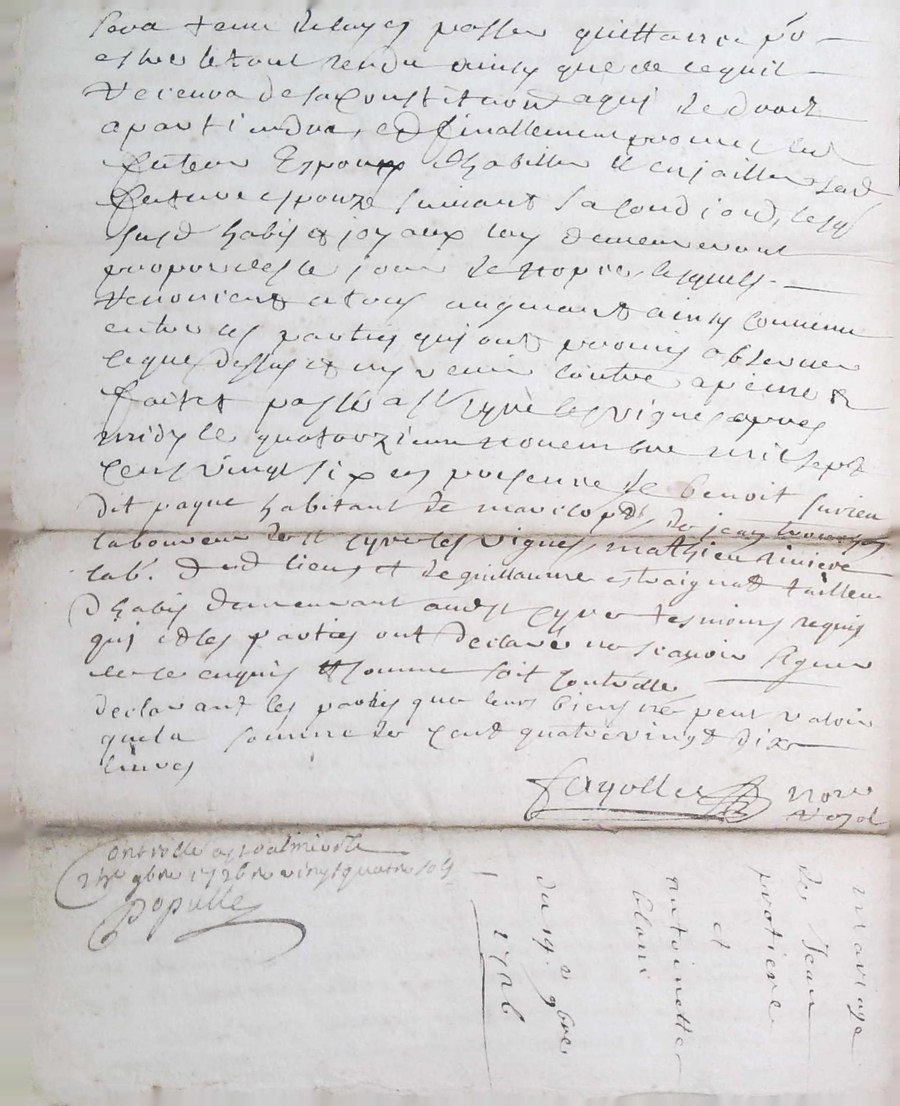 sera tenu de luy en passer quittance po
estre le tout rendu ainsy que de ce quil
recevra de sa constitution a qui de droit
apartiendra, et finallement promet led
futeur Espoux dhabiller et enjailler sad
future espouze suivant sa condiond, lesq
susd habis et joyaux luy demeureront
propor des le jour de nopce, lesquels
ainsy convenu
entre les parties qui ont promis observer
ce que dessus et ny venir contre a peine &
faict et passé a St Cyre les vignes apres
midy le quatorzieme novembre mil sept
cens vingt six en presence de benoit
dit paque habitant de de jean
laboureur de St Cyre les vignes, mathieu riviere
lab.r dud lieux et de guillaume estraignat tailleur
dhabis demeurant aud St Cyre tesmoins requis
qui et les parties ont declaré ne scavoir signer
de ce enquis et somme soit controllé
declarant les parties que leurs biens ne peut valoir
que la somme de cent quatre vingt dix
livres
fayolle nore
royal
Controllé a
9bre 1726 R vingt quatre sols
Populle
mariage
de Jean
protiere
et
antoinette
du 14.e 9bre
1726